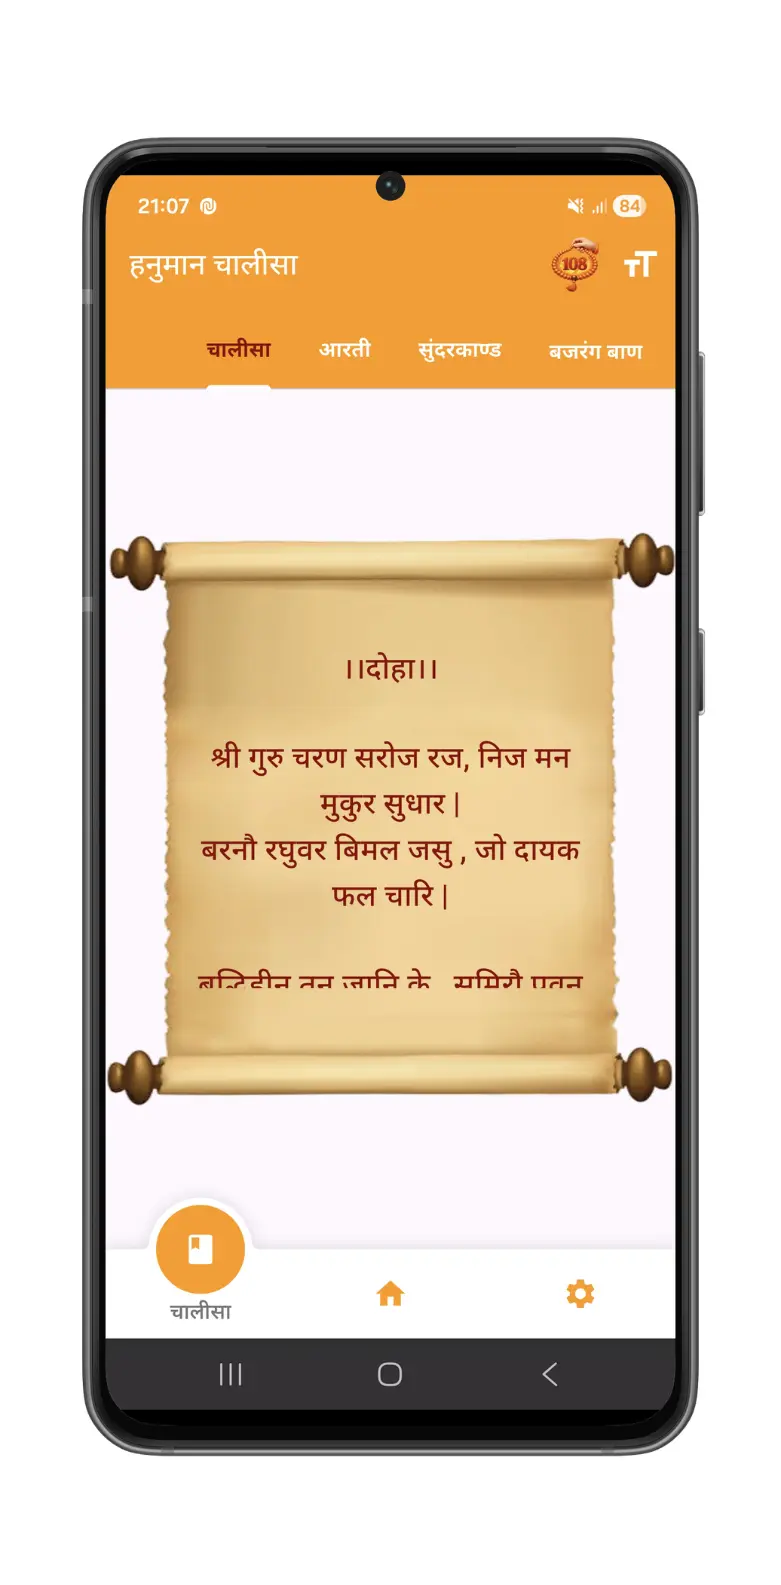 21:07
84
हनुमान चालीसा
108
TT
चालीसा आरती सुंदरकाण्ड बजरंग बाण
।।दोहा।।
श्री गुरु चरण सरोज रज, निज मन
मुकुर सुधार |
बरनौ रघुवर बिमल जसु , जो दायक
फल चारि |
चालीसा